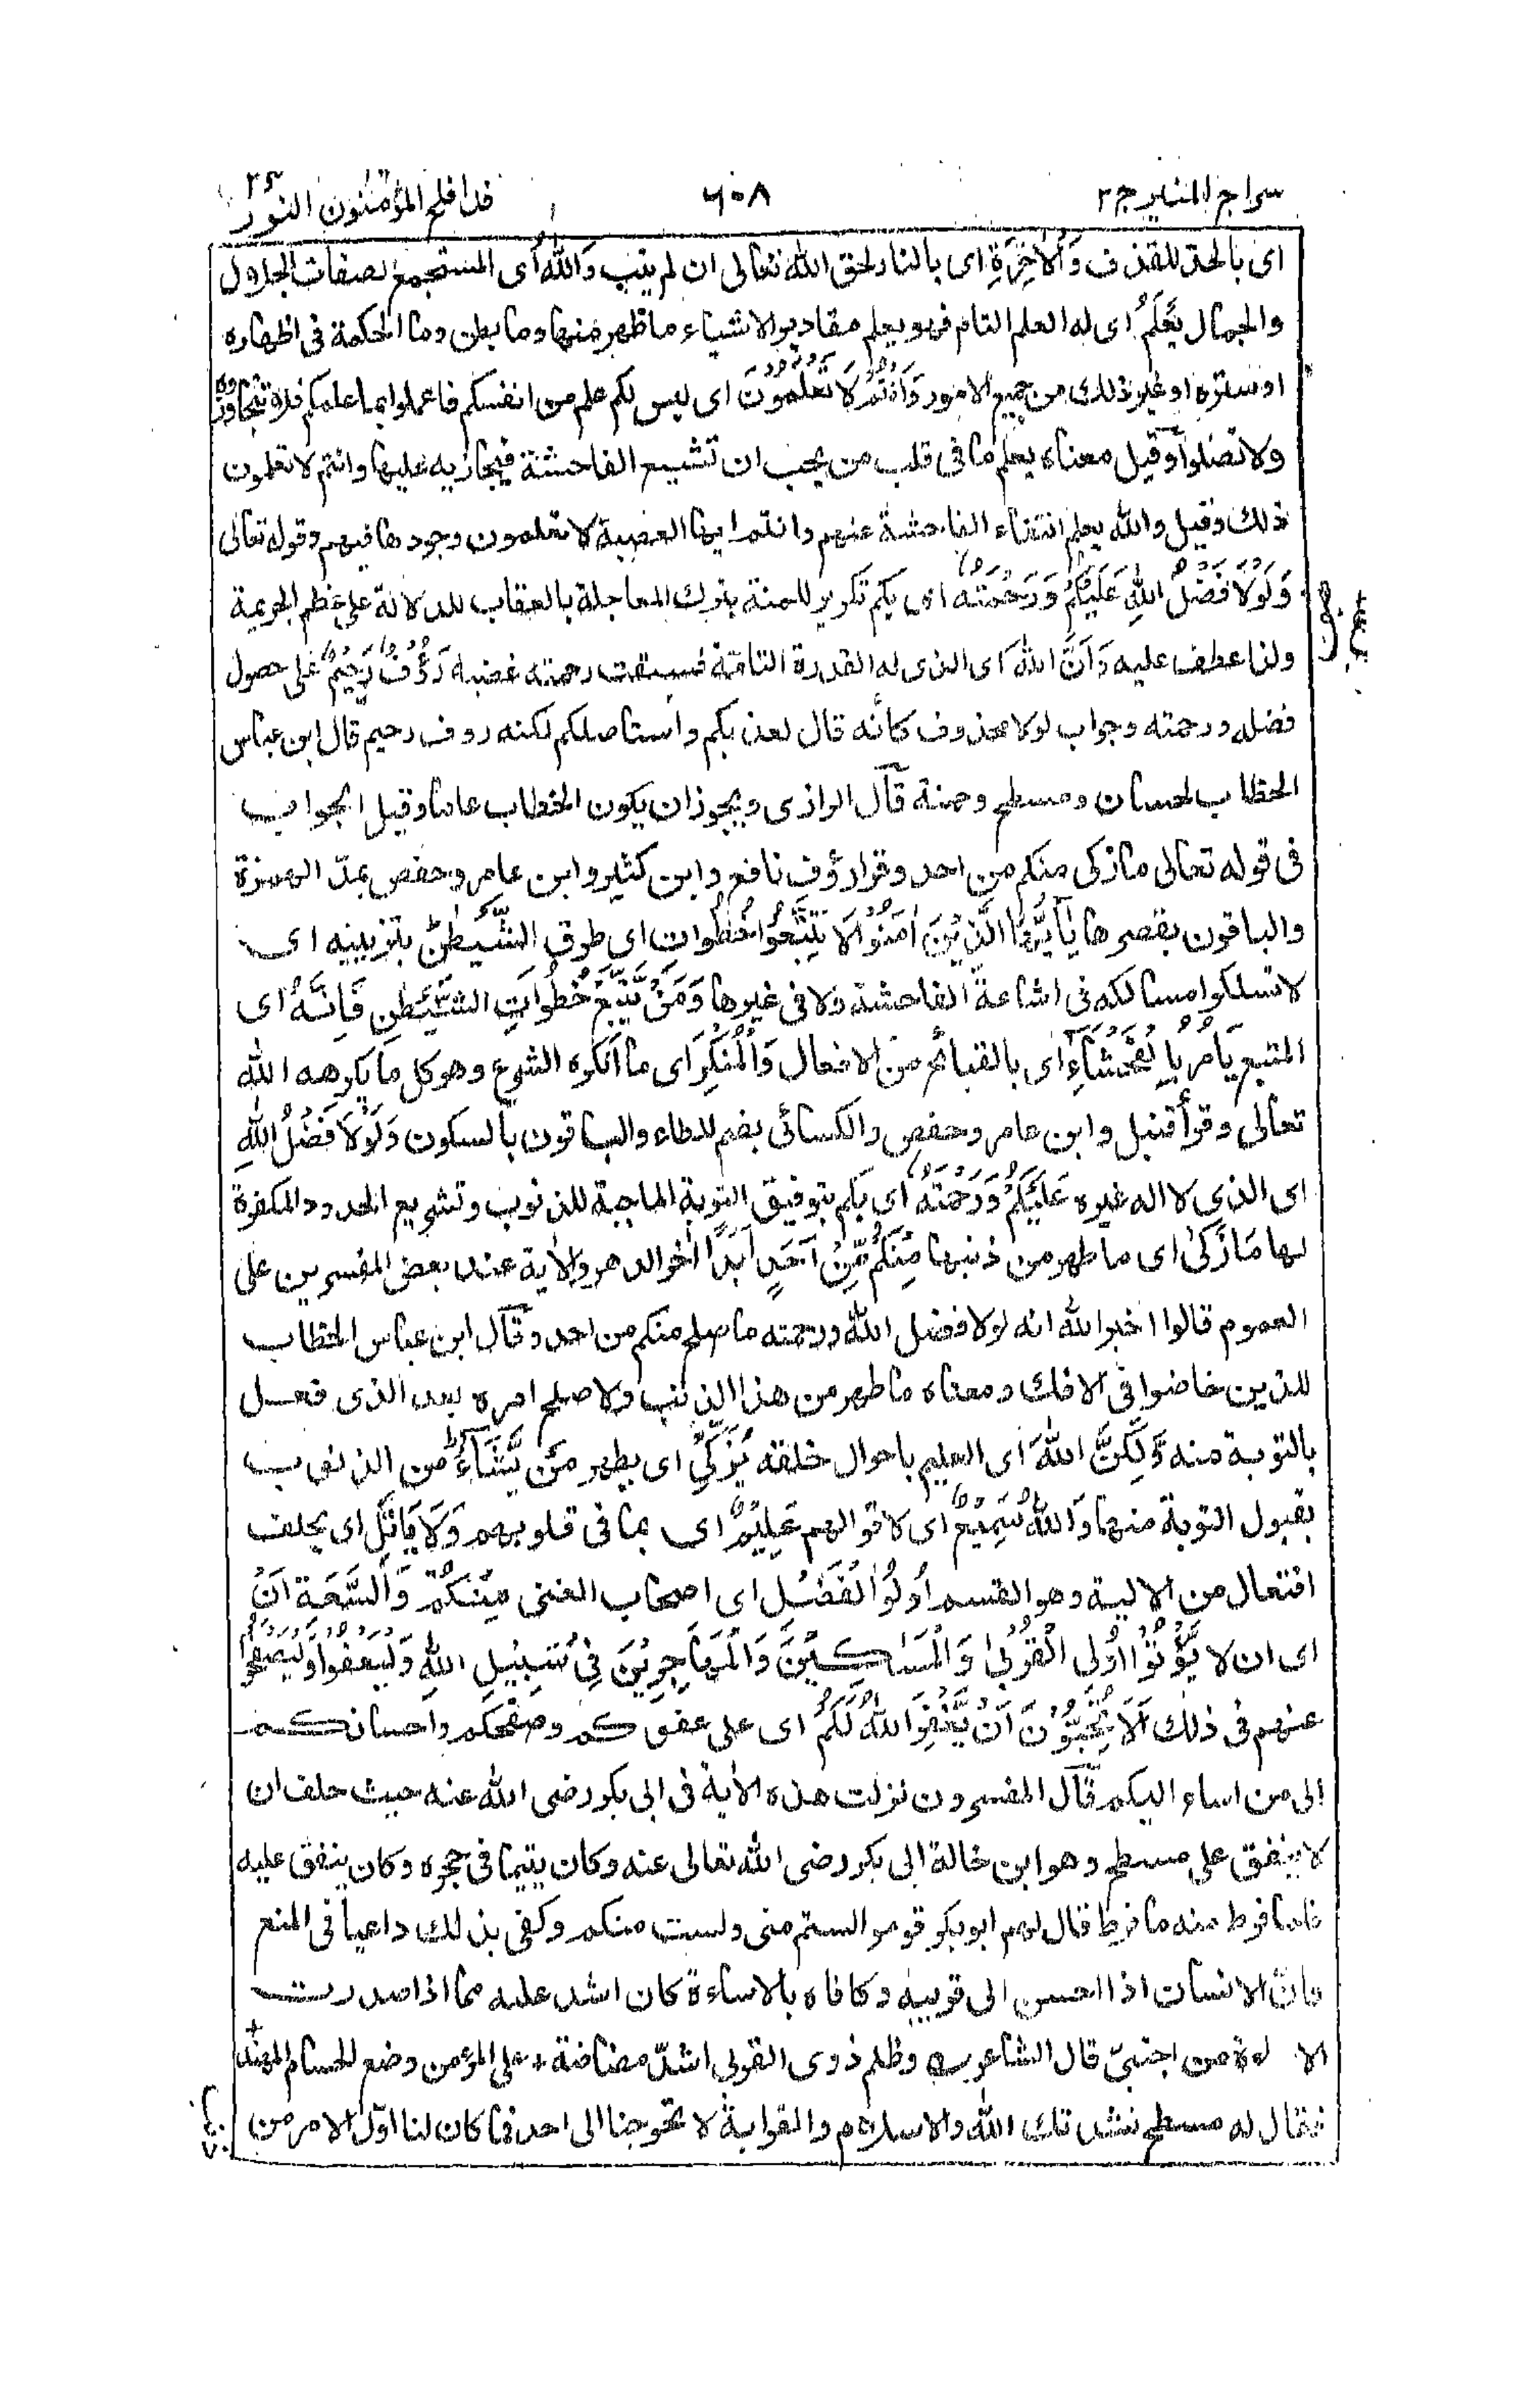 سراج المنير ج ٣ ٦٠٨ قد افلح المؤمنون النور ٢٤
اى بالحد للقذف وَالْاٰخِرَةِ اى بالنار لحق الله تعالى ان لم يتب وَاللهُ اى المستجمع لصفات الجلال
والجمال يَعْلَمُ اى له العلم التام فهو يعلم مقادير الاشياء ما ظهر منها وما بطن وما الحكمة فى اظهاره
او ستره او غير ذلك من جميع الامور وَاَنْتُمْ لَا تَعْلَمُوْنَ اى ليس لكم علم من انفسكم فاعملوا بما علمكم فلا تتجاوزوه
ولا تضلوا وقيل معناه يعلم ما فى قلب من يحب ان تشيع الفاحشة فيجازيه عليها وانتم لا تعلمون
ذلك وقيل والله يعلم انتفاء الفاحشة عنهم وانتم ايها العصبة لا تعلمون وجودها فيهم وقوله تعالى
وَلَوْلَا فَضْلُ اللهِ عَلَيْكُمْ وَرَحْمَتُهٗ اى بكم تكرير للمنة بترك المعاجلة بالعقاب للدلالة على عظم الجريمة
ولذا عطف عليه وَاَنَّ اللهَ اى الذى له القدرة التامة فسبقت رحمته غضبه رَءُوْفٌ رَّحِيْمٌ على حصول
فضله ورحمته وجواب لولا محذوف كأنه قال لعذبكم واستاصلكم لكنه روف رحيم قال ابن عباس
الخطاب لحسان ومسطح وحمنة قال الرازى ويجوز ان يكون الخطاب عاما وقيل الجواب
فى قوله تعالى ما زكى منكم من احد وقرا رؤف نافع وابن كثير وابن عامر وحفص بمدّ الهمزة
والباقون بقصرها يٰۤاَيُّهَا الَّذِيْنَ اٰمَنُوْا لَا تَتَّبِعُوْا خُطُوٰتِ اى طرق الشَّيْطٰنِ بتزيينه اى
لا تسلكوا مسالكه فى اشاعة الفاحشة ولا فى غيرها وَمَنْ يَّتَّبِعْ خُطُوَاتِ الشَّيْطٰنِ فَاِنَّهٗ اى
المتبع يَأْمُرُ بِالْفَحْشَآءِ اى بالقبائح من الافعال وَالْمُنْكَرِ اى ما انكره الشرع وهو كل ما يكرهه الله
تعالى وقرأ قنبل وابن عامر وحفص والكسائى بضم للطاء والباقون بالسكون وَلَوْلَا فَضْلُ اللهِ
اى الذى لا اله غيره عَلَيْكُمْ وَرَحْمَتُهٗ اى بكم بتوفيق التوبة الماحية للذنوب وتشريع الحدود المكفرة
لها مَا زَكٰى اى ما طهر من ذنبها مِنْكُمْ مِّنْ اَحَدٍ اَبَدًا اخر الدهر والاية عند بعض المفسرين على
العموم قالوا اخبر الله انه لولا فضل الله ورحمته ما صلح منكم من احد وقال ابن عباس الخطاب
للذين خاضوا فى الافك ومعناه ما طهر من هذا الذنب ولا صلح امره بعد الذى فعل
بالتوبة منه وَلٰكِنَّ اللهَ اى العليم باحوال خلقه يُزَكِّيْ اى يطهر مَنْ يَّشَآءُ من الذنوب
بقبول التوبة منها وَاللهُ سَمِيْعٌ اى لاقوالهم عَلِيْمٌ اى بما فى قلوبهم وَلَا يَأْتَلِ اى يحلف
افتعال من الالية وهو القسم اُولُوا الْفَضْلِ اى اصحاب الغنى مِنْكُمْ وَالسَّعَةِ اَنْ
اى ان لا يُّؤْتُوْۤا اُولِى الْقُرْبٰى وَالْمَسٰكِيْنَ وَالْمُهَاجِرِيْنَ فِىْ سَبِيْلِ اللهِ وَلْيَعْفُوْا وَلْيَصْفَحُوْا
عنهم فى ذلك اَلَا تُحِبُّوْنَ اَنْ يَّغْفِرَ اللهُ لَكُمْ اى على عفوكم وصفحكم واحسانكم
الى من اساء اليكم قال المفسرون نزلت هذه الاية فى ابى بكر رضى الله عنه حيث حلف ان
لا ينفق على مسطح وهو ابن خالة ابى بكر رضى الله تعالى عنه وكان يتيما فى حجره وكان ينفق عليه
فلما فرط منه ما فرط قال لهم ابو بكر قوموا لستم منى ولست منكم وكفى بذلك داعيا فى المنع
فان الانسان اذا احسن الى قريبه وكافاه بالاساءة كان اشد عليه مما اذا صدرت
الا  ءة من اجنبىّ قال الشاعر وظلم ذوى القربى اشدّ مضاضة + على المرء من وضع الحسام المهند
فقال له مسطح نشدتك الله والاسلام والقرابة لا تحوجنا الى احد فما كان لنا اوّل الامر من